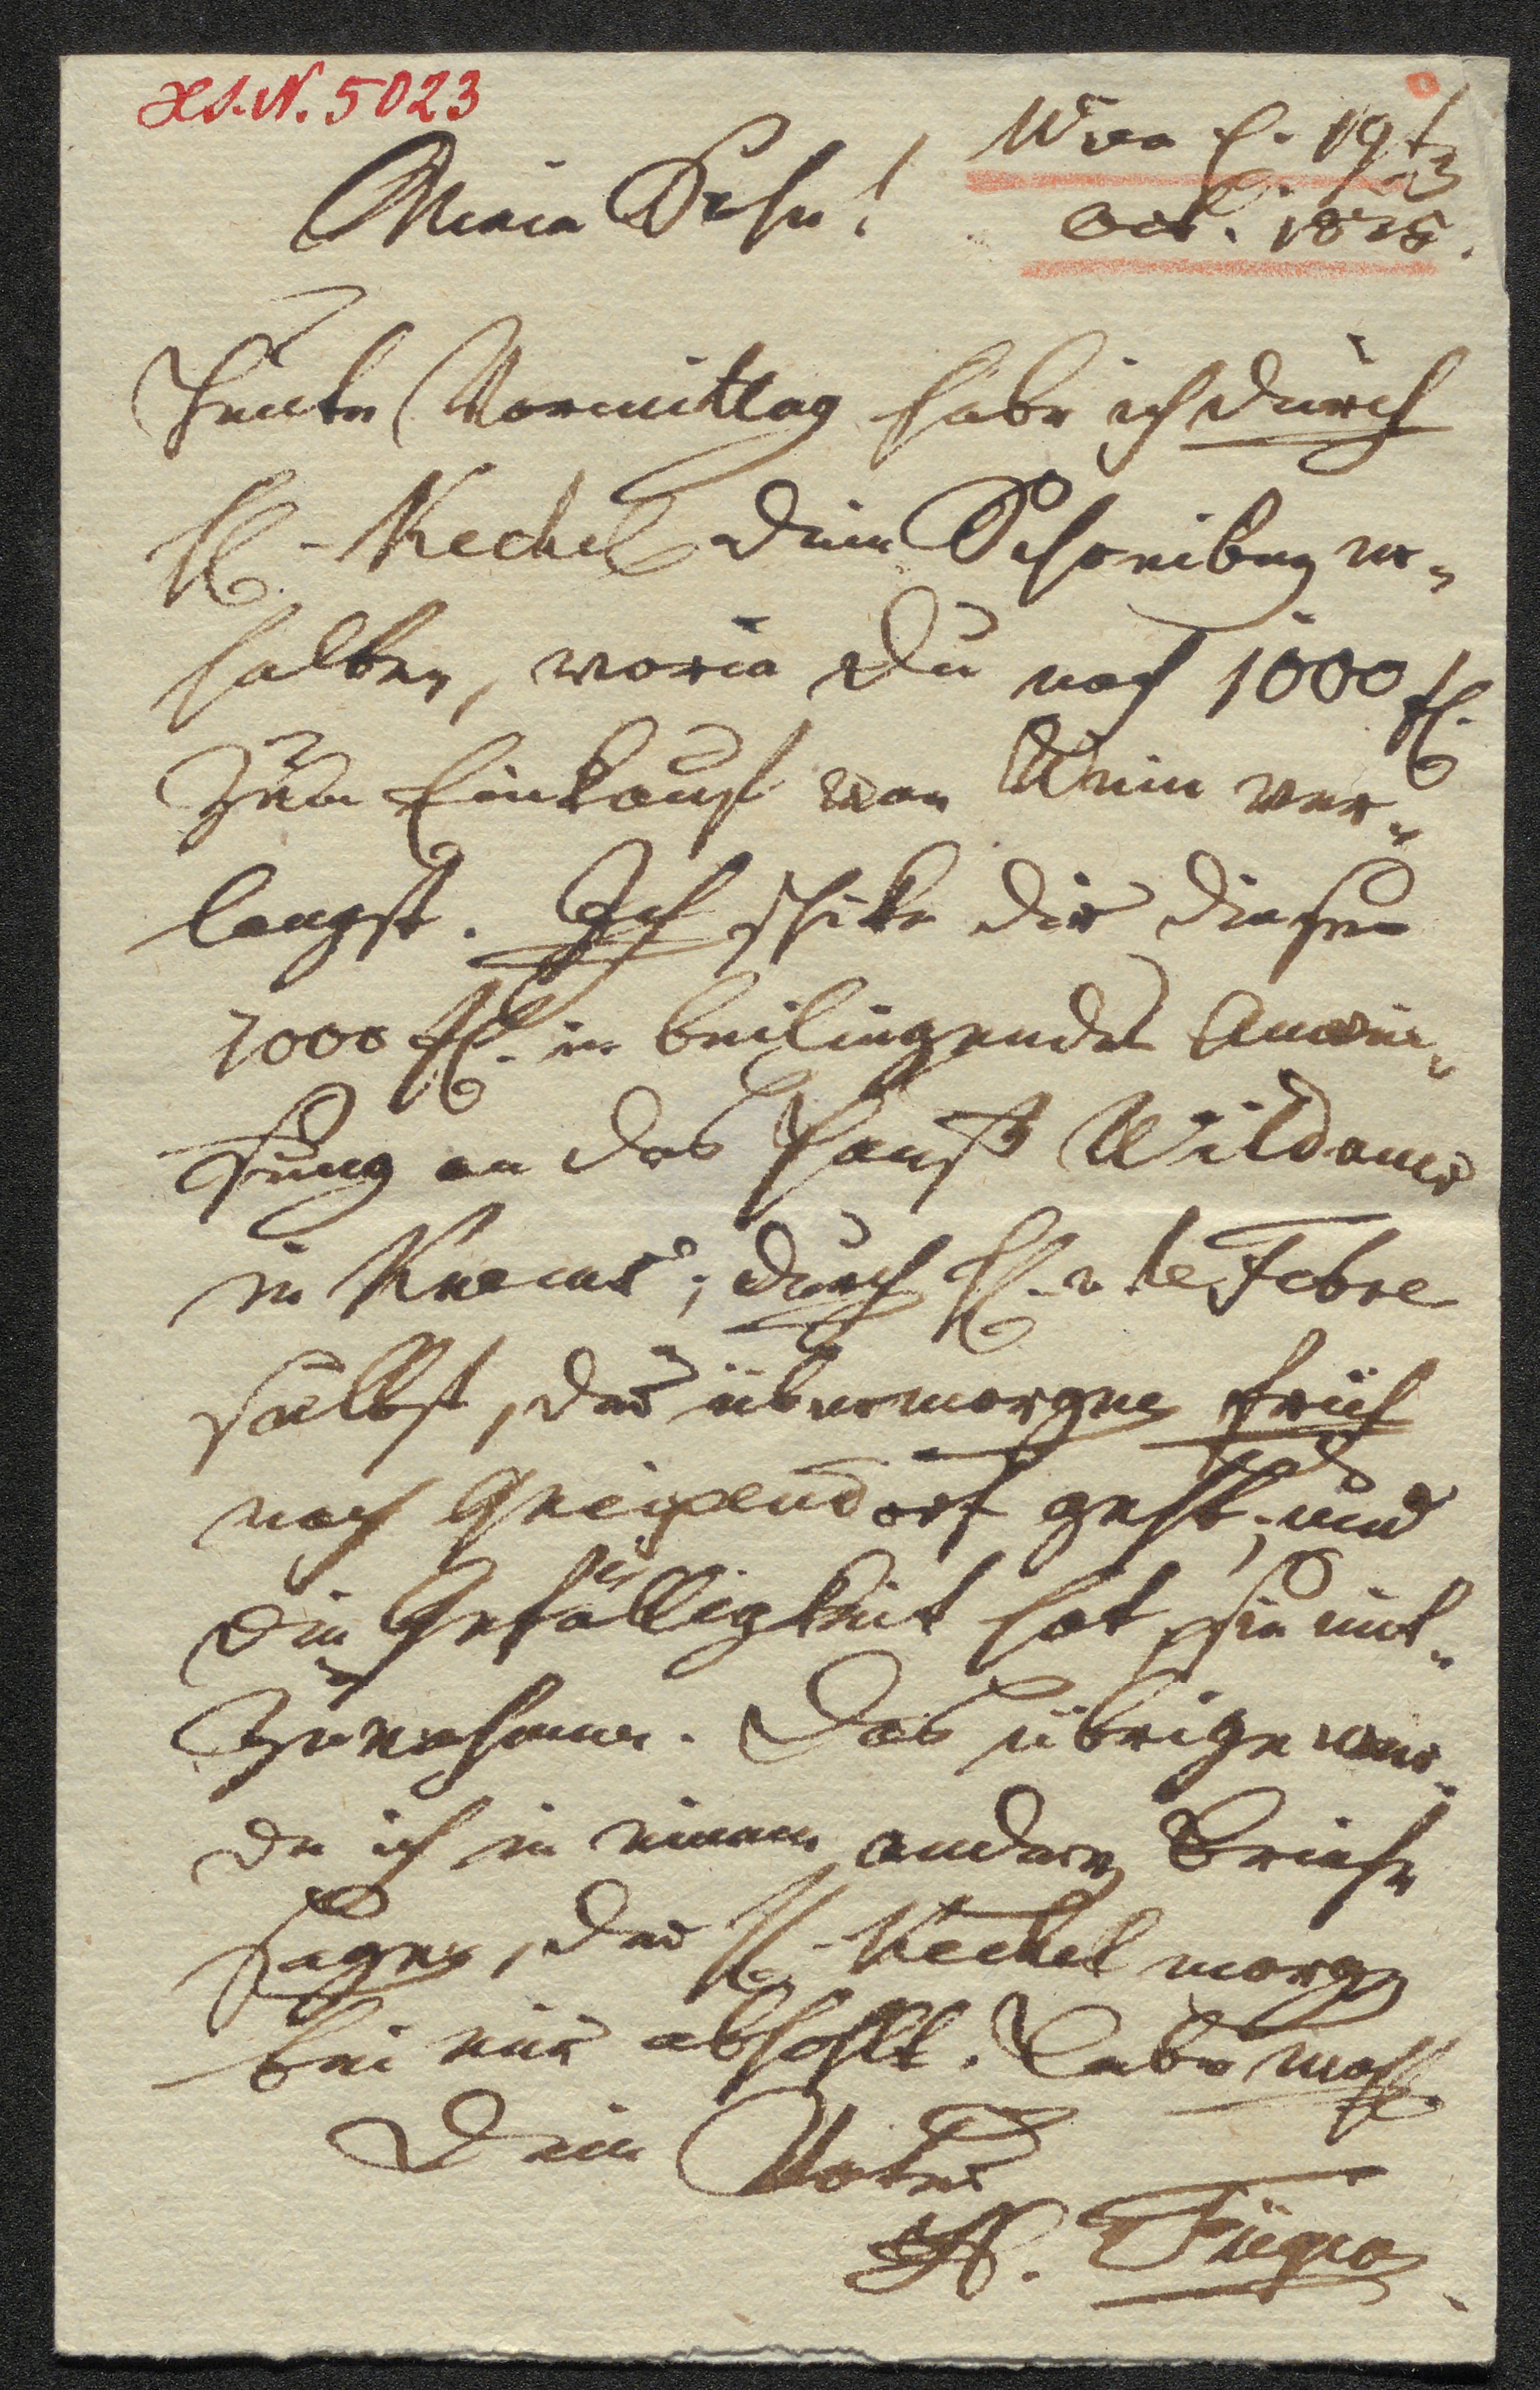 H.I.N. 5023
Wien d. 19t
Oct. 1818.
Mein Sohn!
Heute Vormittag habe ich durch
H. Kechel dein Schreiben er-
halten, worin du noch 1000 fl.
zum Einkauf von Wein ver-
langst. Ich schike dir diesen
1000 fl. in beiliegender Anwei-
sung an das Hauß Wildauer
in Krems; durch H. v. le Febre
selbst, der übermorgen früh
nach Gneixendorf geht; und
die Gefälligkeit hat sie mit-
zunehmen. Das übrige wer-
de ich in einem andern Briefe
sagen, den H. Kechel morgen
bei mir abhohlt. Lebe wohl.
Dein Vater
H. Füger